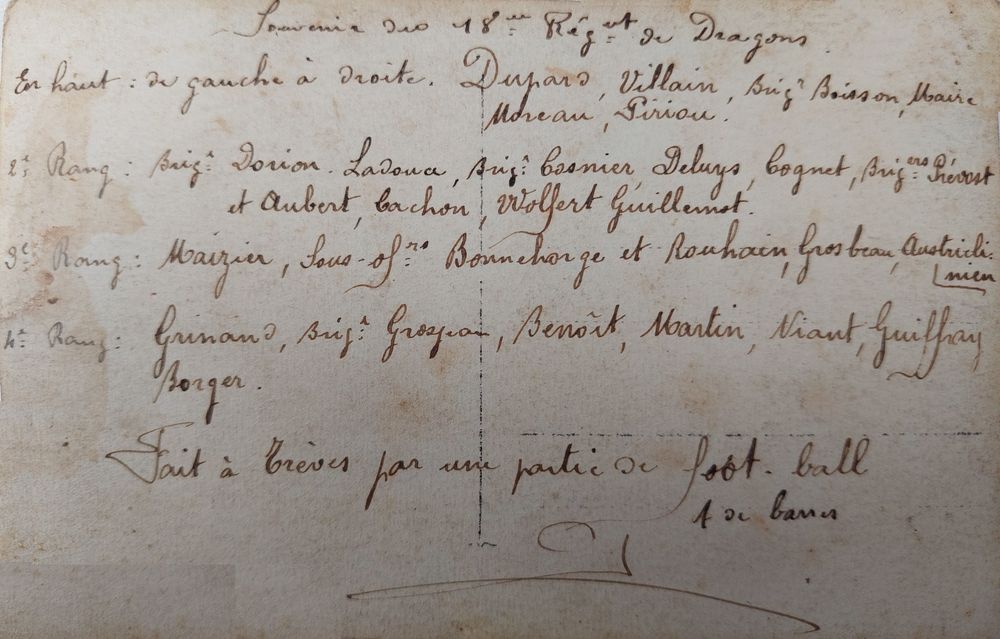 Souvenir du 18me Régnt de Dragons
En haut : de gauche à droite. Dupard, Villain, Brigr Boisson, Maire
Moreau, Piriou.
2e Rang : Brigr Dorion. Ladouce, Brigr Cosnier, Deluys, Cognet, Brigers Prévost
et Aubert, Cachon, Wolfert Guillemot.
3e Rang : Maizier, Sous-ofrs Bonnehorge et Rouhain, Grosbeau, Austricli-
nien
4e Rang : Grinand, Brigr Grosjean, Benoît, Martin, Niant, Guiffray,
Borger.
Fait à Trèves par une partie de foot-ball
de barres